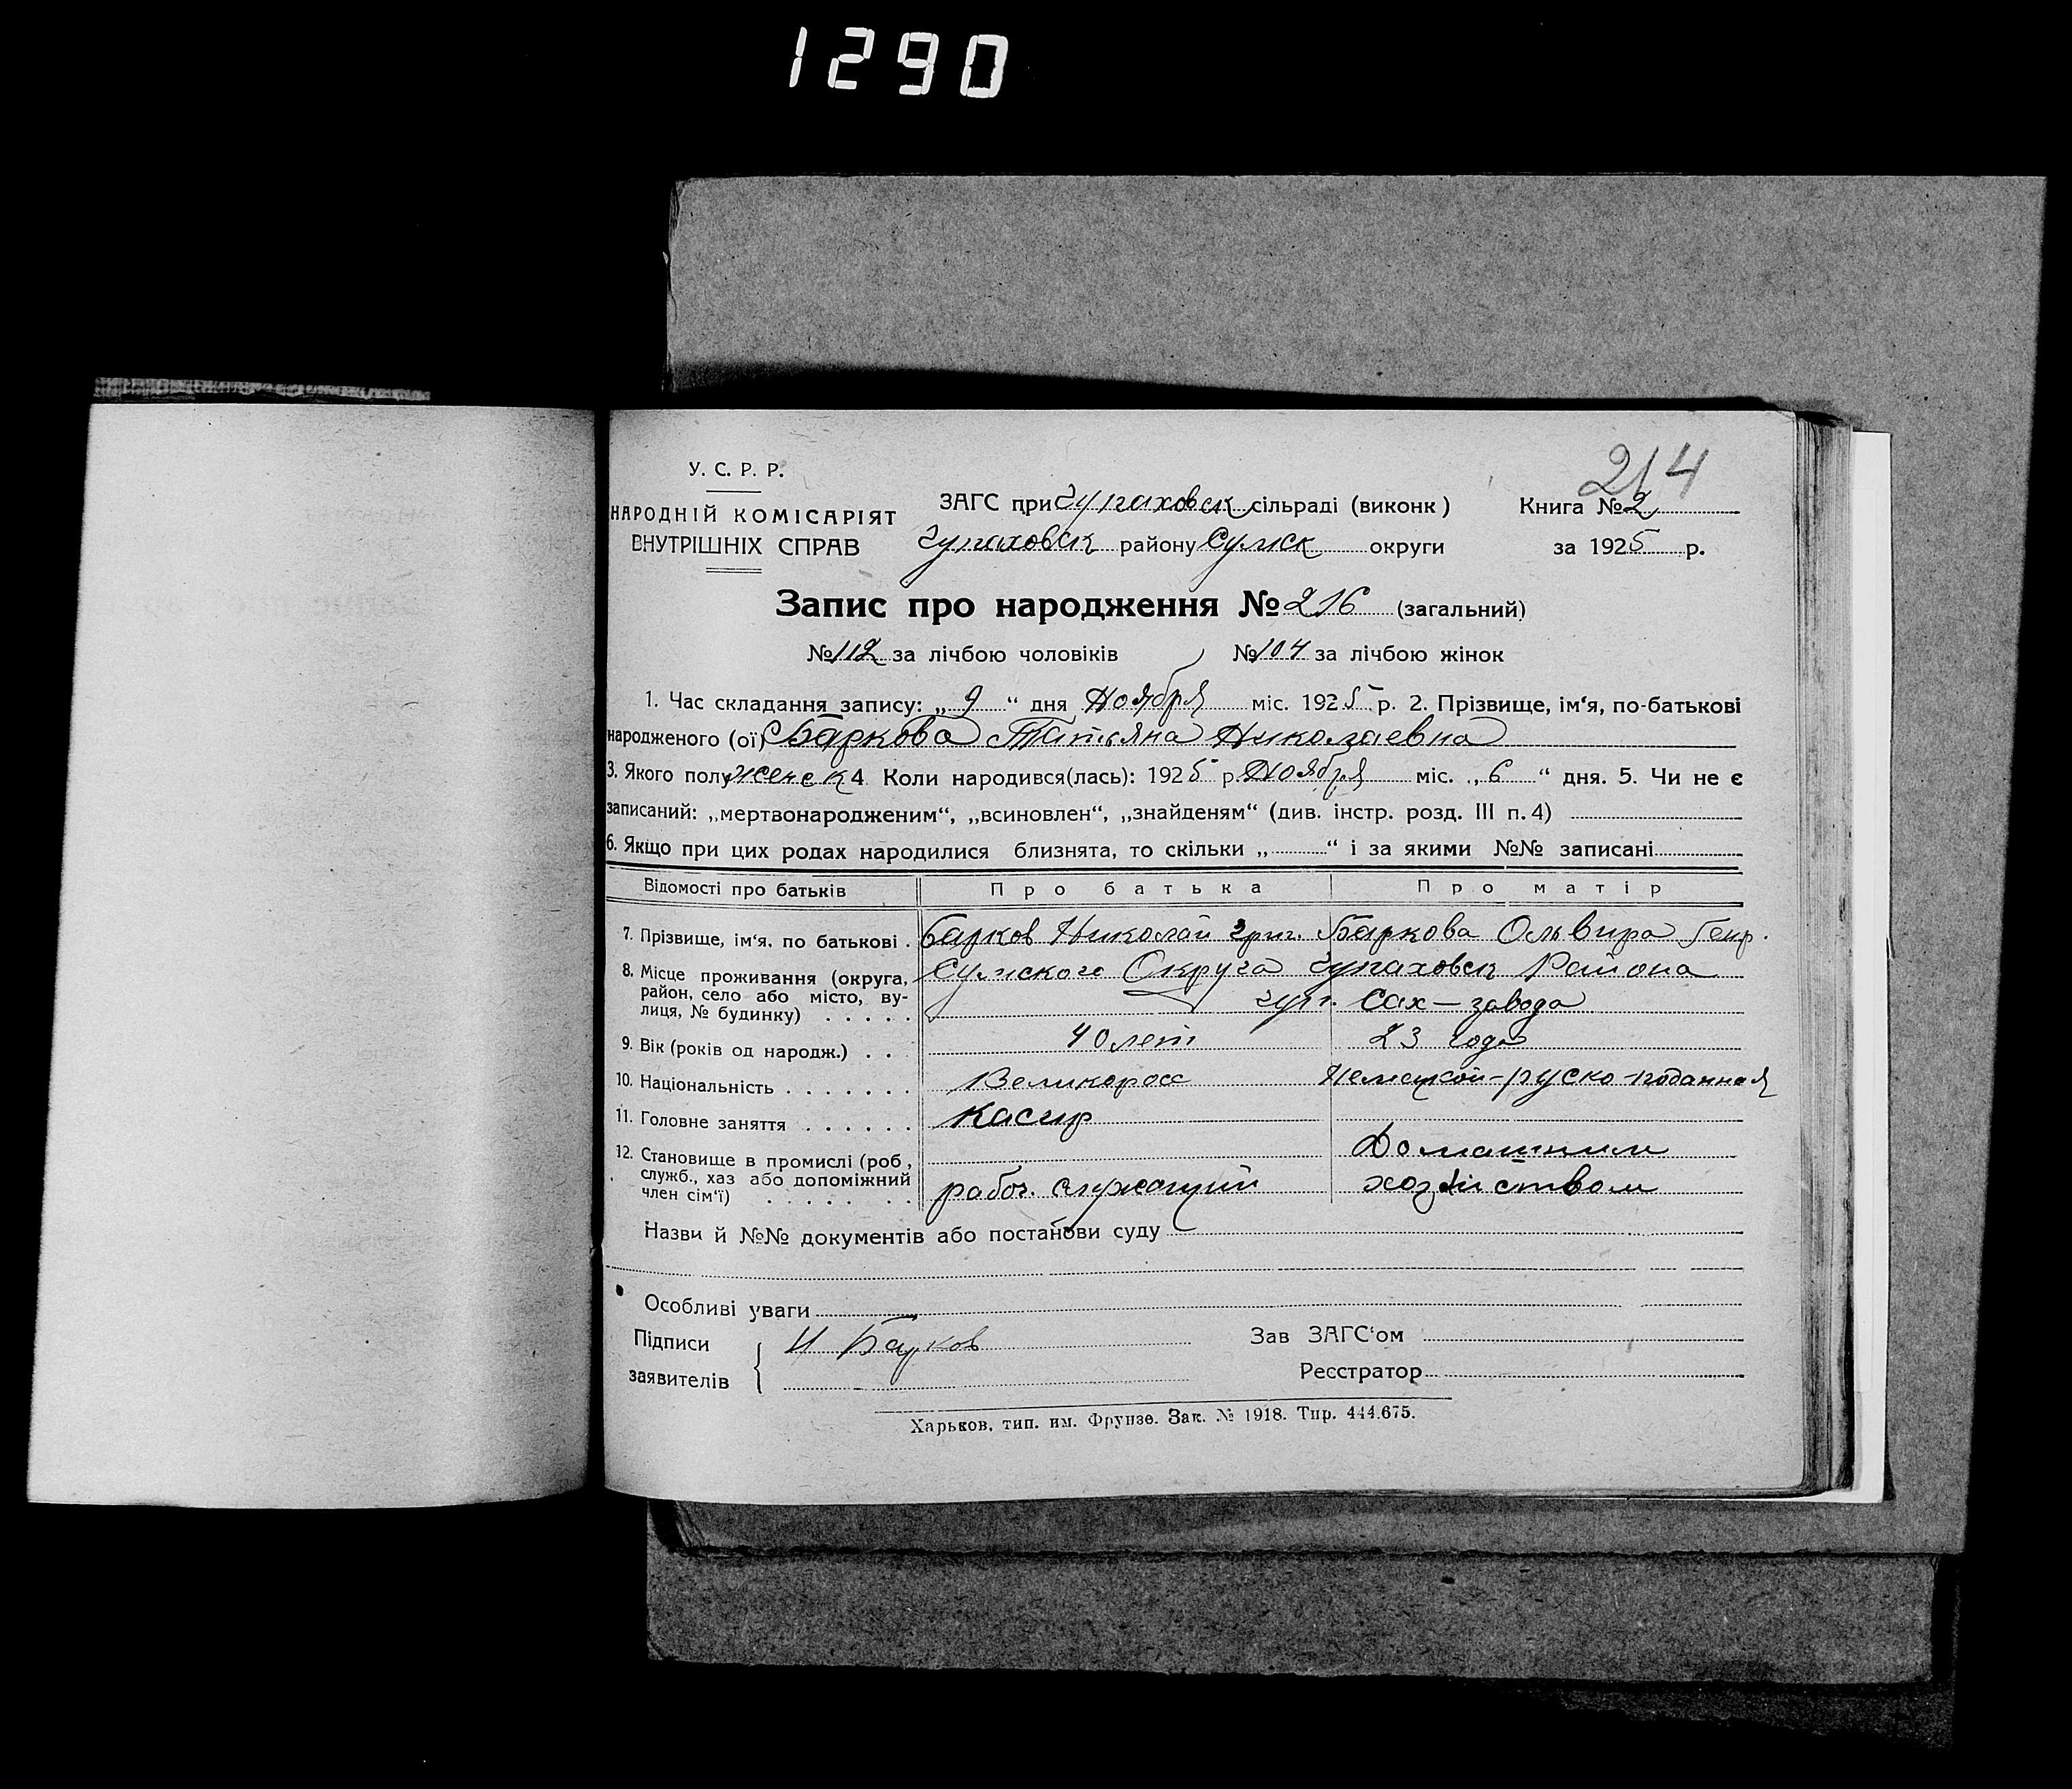 1290
214
У. С. Р. Р.
НАРОДНІЙ КОМІСАРІЯТ
ВНУТРІШНІХ СПРАВ
ЗАГС при Чупаховск сільраді (виконк)
Книга № 2
Чупаховск району Сумск округи
за 1925 р.
Запис про народження № 216 (загальний)
№ 112 за лічбою чоловіків № 104 за лічбою жінок
1. Час складання запису: „ 9 “ дня Ноября міс. 1925 р. 2. Прізвище, ім‘я, по-батькові
народженого (ої) Баркова Татьяна Николаевна
3. Якого полу женск 4. Коли народився(лась): 1925 р. Ноября міс. „ 6 “ дня. 5. Чи не є
записаний: „мертвонародженим“, „всиновлен“, „знайденям“ (див. інстр. розд. III п. 4)
6. Якщо при цих родах народилися близнята, то скільки „ “ і за якими №№ записані
Відомості про батьків Про батька Про матір
7. Прізвище, ім‘я, по батькові . Барков Николай Григ. Баркова Ольвира Генр.
8. Місце проживання (округа, Сумского Округа Чупаховск Района
район, село або місто, ву-
лиця, № будинку) . . . . . Чуп. Сах-завода
9. Вік (років од народж.) . . 40 лет 23 года
10. Національність . . . . . . . Великоросс Немецкой-руско-поданная
11. Головне заняття . . . . . . Касир
12. Становище в промислі (роб., Домашним
служб., хаз або допоміжний
член сім‘ї) . . . . . . . рабоч. служащий хозяйством
Назви й №№ документів або постанови суду
Особливі уваги
Підписи
заявителів
Н Барков
Зав ЗАГС‘ом
Реєстратор
Харьков, тип. им. Фрунзе. Зак. № 1918. Тир. 444.675.